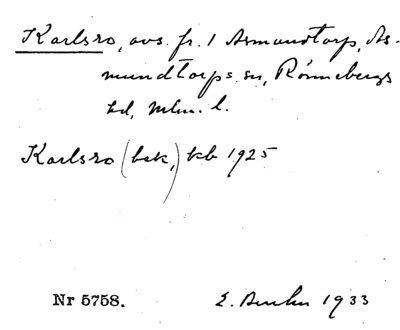 Karlsro, avs. fr. 1 Asmundtorp, As-
mundtorps sn, Rönnebergs
hd, Mlm. l.
Karlsro (bsk,) kb 1925
Nr 5758. E. 1933